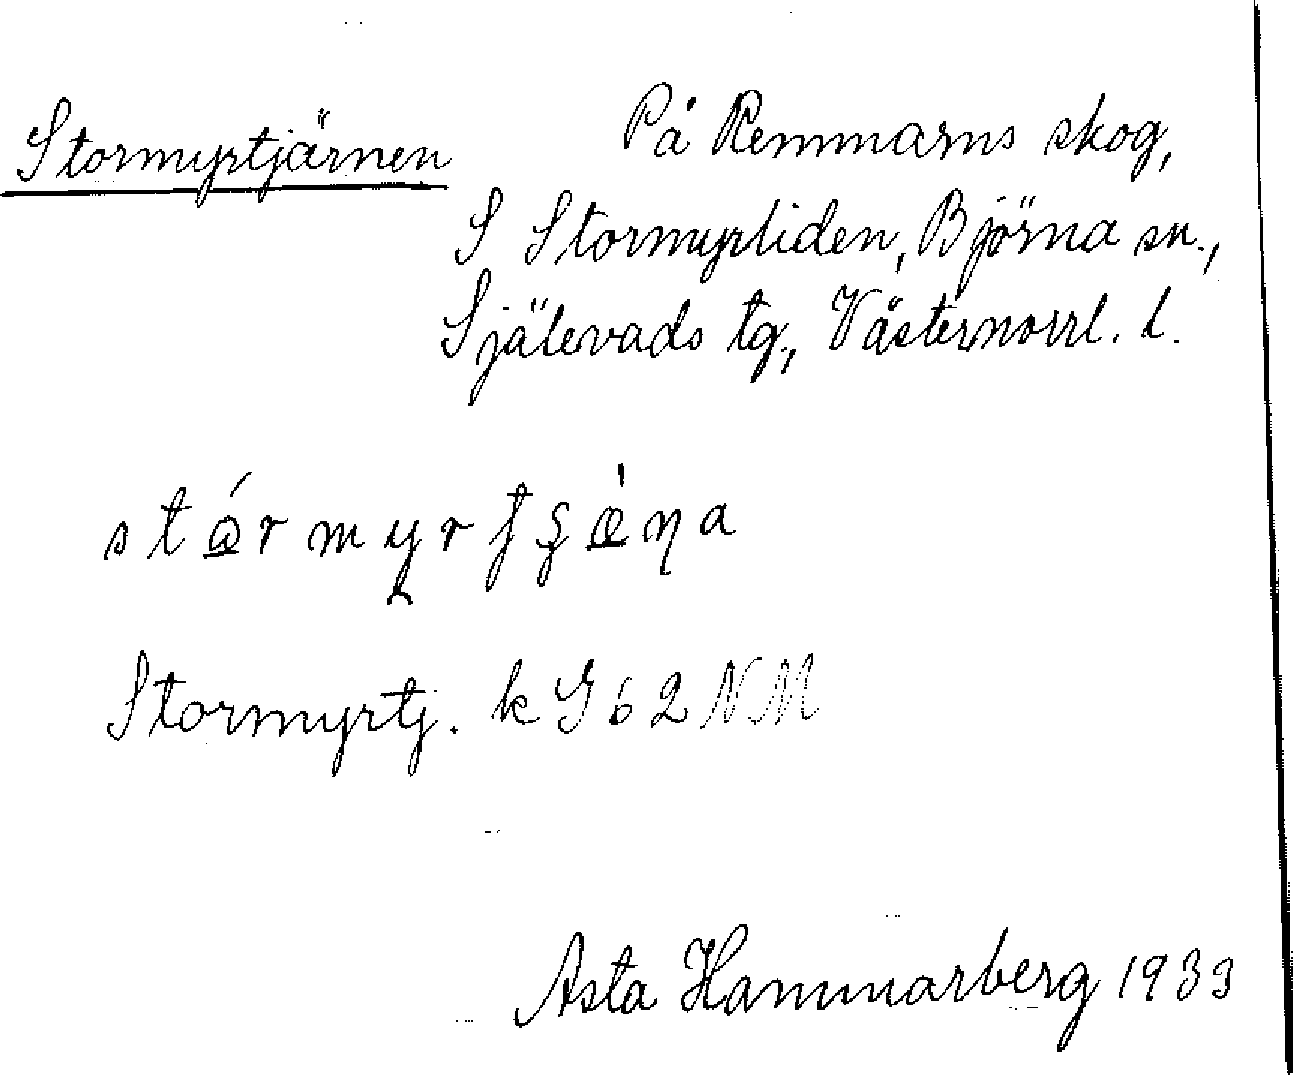 Stormyrtjärnen
På Remmarns skog,
S Stormyrliden, Björna sn.,
Själevads tg., Västernorrl. l.
Stormyrtj. k G 62 NM
Asta Hammarberg 1933